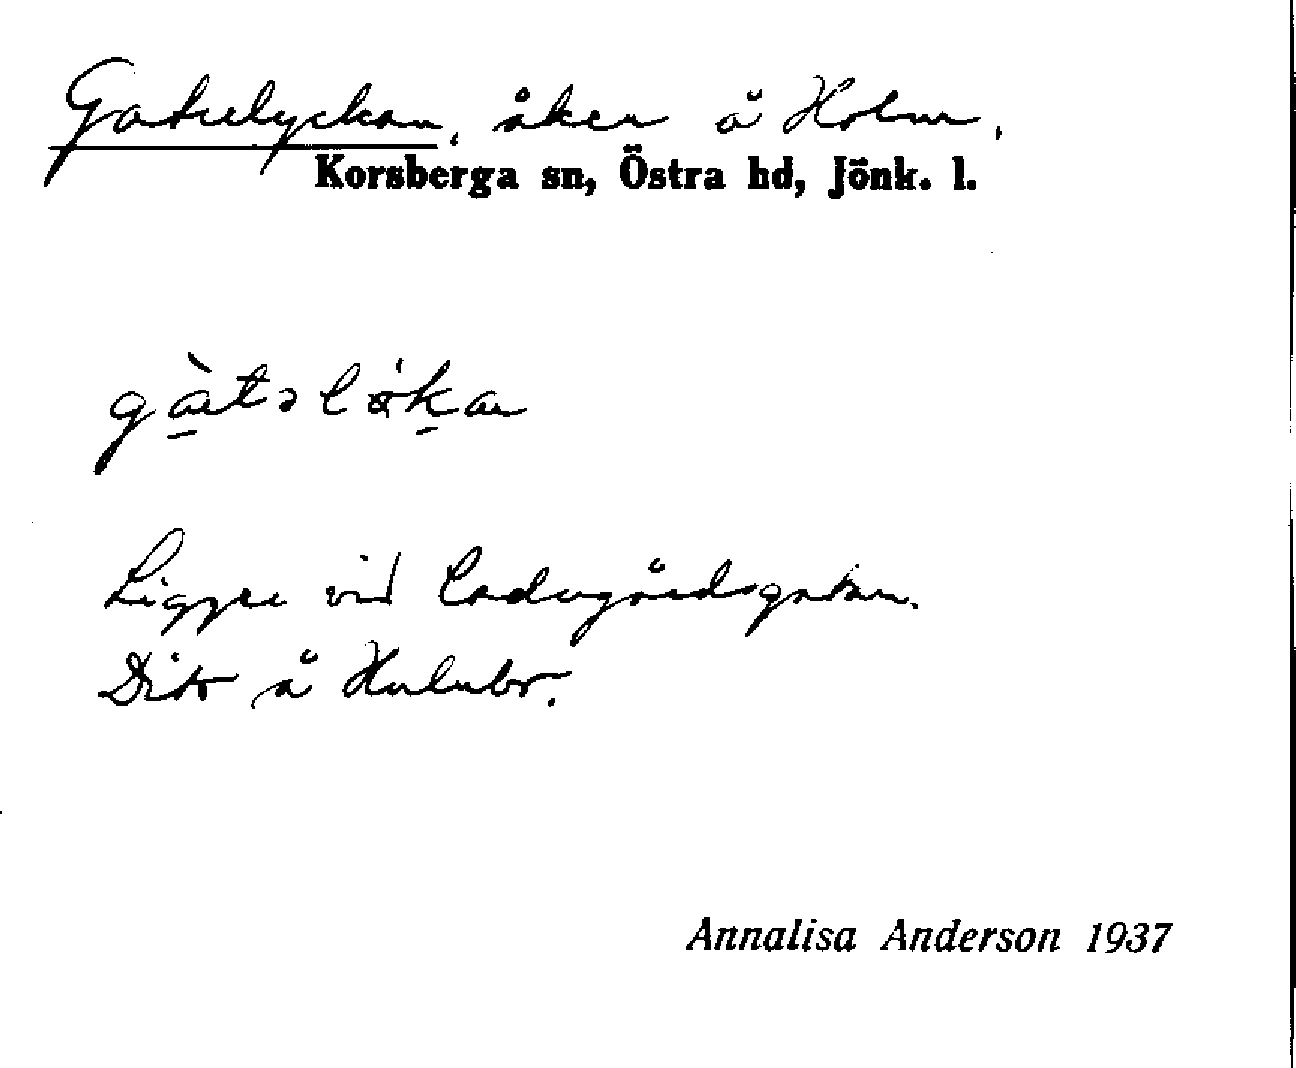 Gatulyckan, åker å Holm,
Korsberga sn, Östra hd, Jönk. l.
gàtəlökan
Ligger vid ladugårdsgatan.
Dito å Hulubo.
Annalisa Anderson 1937